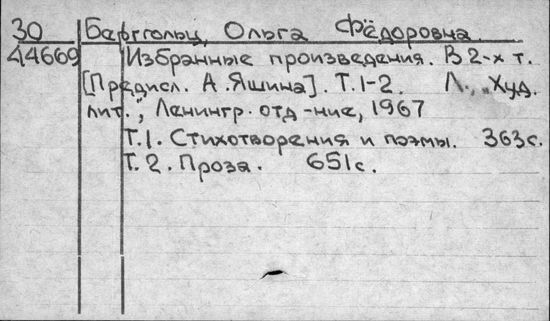 30 Берггольц, Ольга Фёдоровна.
44669 Избранные произведения. В 2-х т.
[Предисл. А. Яшина]. Т.1-2. Л., „Худ.
лит.", Ленингр. отд-ние, 1967
Т.1. Стихотворения и поэмы. 363с.
Т.2. Проза. 651с.